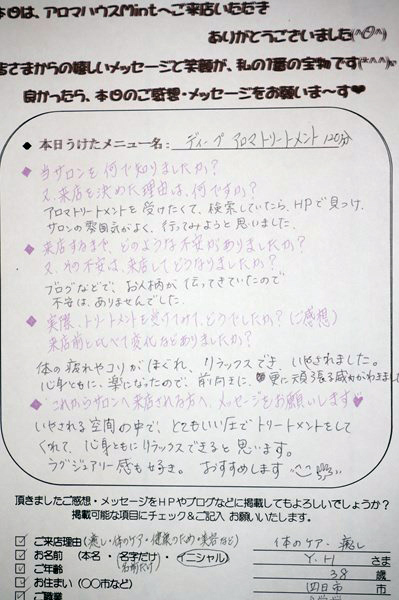 本日は、アロマハウスMintへご来店いただき
ありがとうございました(^O^)
店さまからの嬉しいメッセージと笑顔が、私の1番の宝物です(*^^*)
良かったら、本日のご感想・メッセージをお願いま〜す♥
◆ 本日うけたメニュー名: ディープ アロマトリートメント 120分
◆ 当サロンを何で知りましたか?
又、来店を決めた理由は、何ですか?
アロマトリートメントを受けたくて、検索していたら、HPで見つけ、
サロンの雰囲気がよく、行ってみようと思いました。
◆ 来店するまで、どのような不安がありましたか?
又、その不安は、来店してどうなりましたか?
ブログなどで、お人柄が伝ってきていたので
不安は、ありませんでした。
◆ 実際、トリートメントを受けてみて、どうでしたか?(ご感想)
来店前とくらべて変化などありましたか?
体の疲れやコリがほぐれ、リラックスでき、いやされました。
心身ともに、楽になったので、前向きに、更に頑張る感がわきました
◆ これからサロンへ来店される方へ、メッセージをお願いします♥
いやされる空間の中で、とてもいい圧でトリートメントをして
くれて、心身ともにリラックスできると思います。
ラグジュアリー感も好き。 おすすめします
頂きましたご感想・メッセージをHPやブログなどに掲載してもよろしいでしょうか?
掲載可能な項目にチェック&ご記入 お願いいたします。
☑ ご来店理由(癒し・体のケア・健康のため・美容など) 体のケア、癒し
☑ お名前 (本名・名字だけ・イニシャル) Y.H さま
☑ ご年齢 名前だけ 38 歳
☑ お住まい (〇〇市など) 四日市 市
☑ ご職業